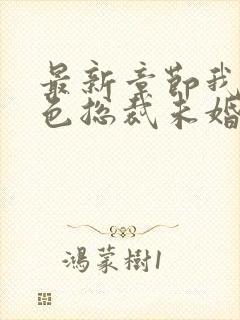 最新章節我
色總裁未婚
鴻蒙樹1